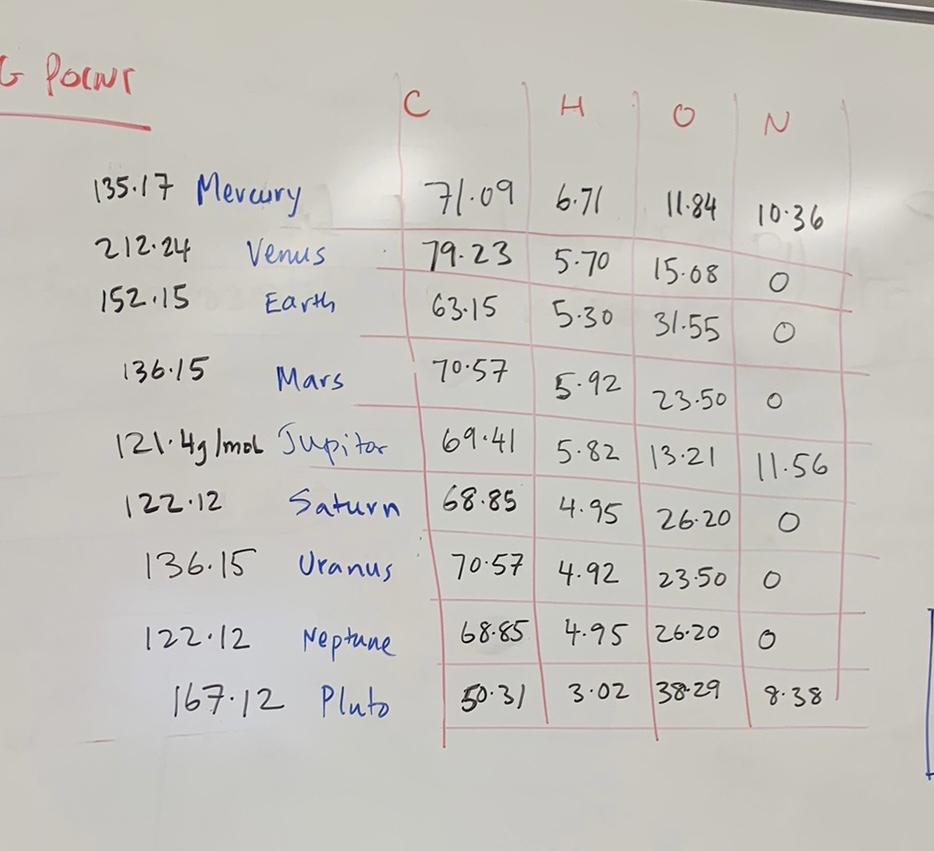 G POINT
C H O N
135.17 Mercury 71.09 6.71 11.84 10.36
212.24 Venus 79.23 5.70 15.08 0
152.15 Earth 63.15 5.30 31.55 0
136.15 Mars 70.57 5.92 23.50 0
121.4g/mol Jupitor 69.41 5.82 13.21 11.56
122.12 Saturn 68.85 4.95 26.20 0
136.15 Uranus 70.57 4.92 23.50 0
122.12 Neptune 68.85 4.95 26.20 0
167.12 Pluto 50.31 3.02 38.29 8.38